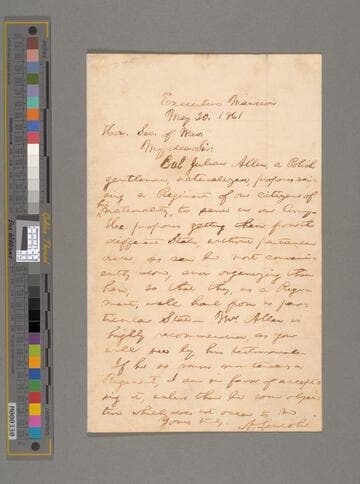 Executive Mansion
May 30. 1861
Hon. Sec. of War
My dear Sir
Col. Julian Allen, a Polish
gentleman, naturalized, proposes rais-
ing a Regiment of our citizens of
his nationality, to serve in our Army.
He proposes getting them from the
different States, without particular
as can be most conveni-
ently done, and organizing them
here, so that they, as a Regi-
ment, will hail from no par-
ticular State. Mr. Allen is
highly recommended, as you
will see by his testimonials.
If he so raises and tenders a
Regiment, I am in favor of accept-
ing it, unless there be some objec-
tion which does not occur to me.
Yours truly, A. Lincoln
Color Thread
M000330